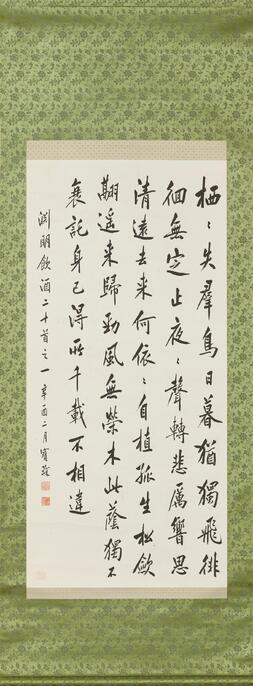 栖〻失羣鳥日暮猶獨飛徘
徊無定止夜〻聲轉悲厲響思
清遠去来何依〻自植孤生松斂
翮遥来歸勁風無榮木此蔭獨不
衰託身已得所千載不相違
淵明飲酒二十首之一 辛酉二月寶熙